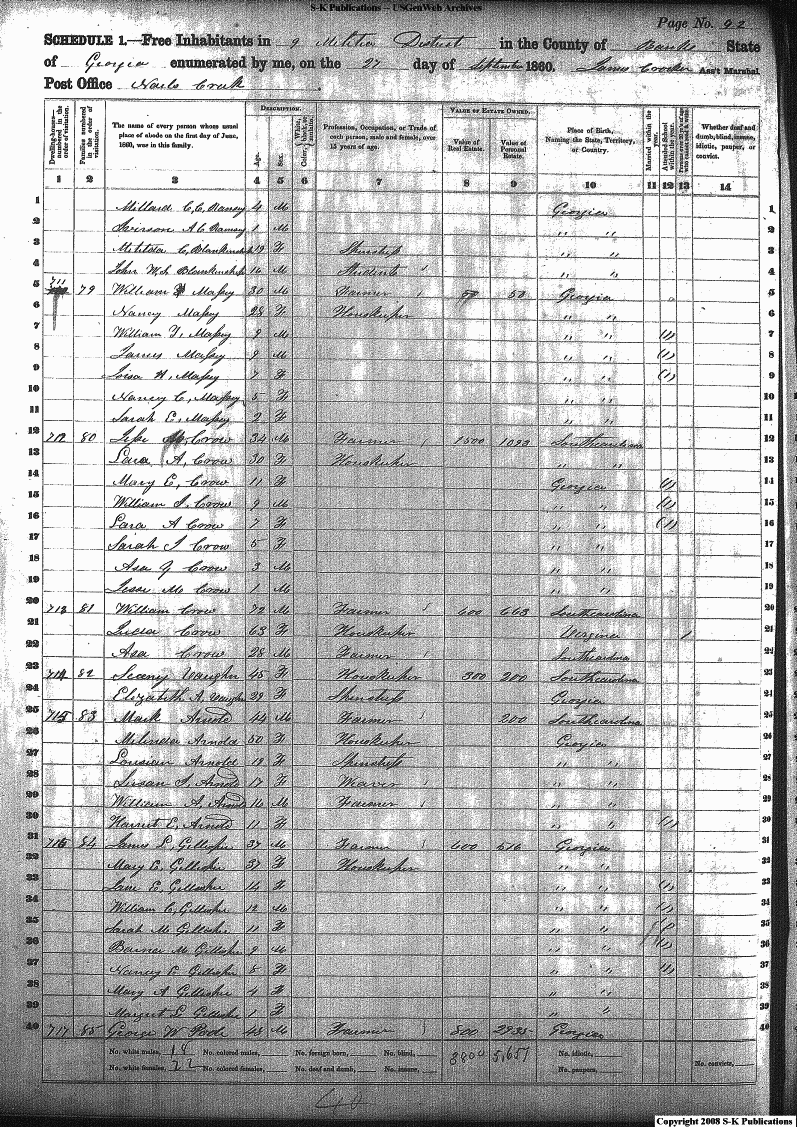 S-K Publications -- USGenWeb Archives
Page No. 92
SCHEDULE 1.—Free Inhabitants in 9 Militia District in the County of Banks State
of Georgia enumerated by me, on the 27 day of September 1860. James Crocker Ass't Marshal
Post Office Nails Creek
Dwelling-houses—numbered in the order of visitation. Families numbered in the order of visitation. The name of every person whose usual place of abode on the first day of June, 1860, was in this family. DESCRIPTION. Age. Sex. Color, White, black, or mulatto. Profession, Occupation, or Trade of each person, male and female, over 15 years of age. VALUE OF ESTATE OWNED. Value of Real Estate. Value of Personal Estate. Place of Birth, Naming the State, Territory, or Country. Married within the year. Attended School within the year. Whether deaf and dumb, blind, insane, idiotic, pauper, or convict.
1 2 3 4 5 6 7 8 9 10 11 12 13 14
1 Millard C. C. Ramsy 4 M Georgia 1
2 Iverson A C Ramsy 1 M " " 2
3 Matilda C, Blankinship 19 F Spinstress " " 3
4 John W. Blankinship 16 M Students " " 4
5 711 79 William Massy 30 M Farmer 50 50 Georgia 5
6 Nancy Massy 28 F Houskeeper " " 6
7 William T, Massy 9 M " " (1) 7
8 James Massy 9 M " " (1) 8
9 Loisa H, Massy 7 F " " (1) 9
10 Nancy C, Massy 5 F " " 10
11 Sarah E, Massy 2 F " " 11
12 712 80 Crow 34 M Farmer 1500 Southcarolina 12
13 A, Crow 30 F Houskeeper " " 13
14 Mary E, Crow 11 F Georgia (1) 14
15 William Crow 9 M " " (1) 15
16 A Crow 7 F " " (1) 16
17 Sarah Crow 5 F " " 17
18 Asa Crow 3 M " " 18
19 Jesse M Crow 1 M " " 19
20 713 81 William Crow 72 M Farmer 600 663 Southcarolina 20
21 Crow 63 F Houskeeper Virginia 21
22 Asa Crow 28 M Farmer Southcarolina 22
23 714 82 Vaughn 45 F Houskeeper 300 200 Southcarolina 23
24 Elizabeth A, Vaughn 29 F Spinstress Georgia 24
25 715 83 Mark Arnold 44 M Farmer 200 Southcarolina 25
26 Milinda Arnold 50 F Houskeeper Georgia 26
27 Lousian Arnold 19 F Spinstress " " 27
28 Susan Arnold 17 F Weaver " " 28
29 William A, Arnold 16 M Farmer " " 29
30 Harriet E, Arnold 11 F " " (1) 30
31 716 84 James Gillespie 37 M Farmer 600 516 Georgia 31
32 Mary E, Gillespie 37 F Houskeeper " " 32
33 Jane E, Gillespie 14 F " " (1) 33
34 William C, Gillespie 12 M " " (1) 34
35 Sarah M Gillespie 11 F " " 35
36 M Gillespie 9 M " " (1) 36
37 Nancy Gillespie 8 F " " 37
38 Mary A Gillespie 4 F " " 38
39 Margret Gillespie 1 F " " 39
40 717 85 George W 43 M Farmer 800 2935 Georgia 40
No. white males, 18 No. colored males, No. foreign born, No. blind, 3800 5,651 No. idiotic,
No. white females, 22 No. colored females, No. deaf and dumb, No. insane, No. paupers, No. convicts,
40
Copyright 2008 S-K Publications